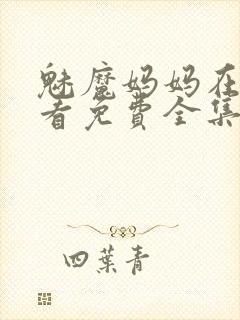 魅魔妈妈在
看免费全集
四葉青